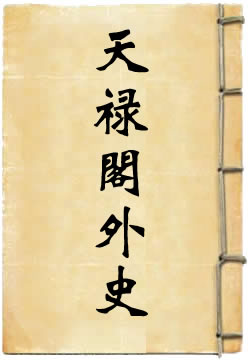 天禄閣外史